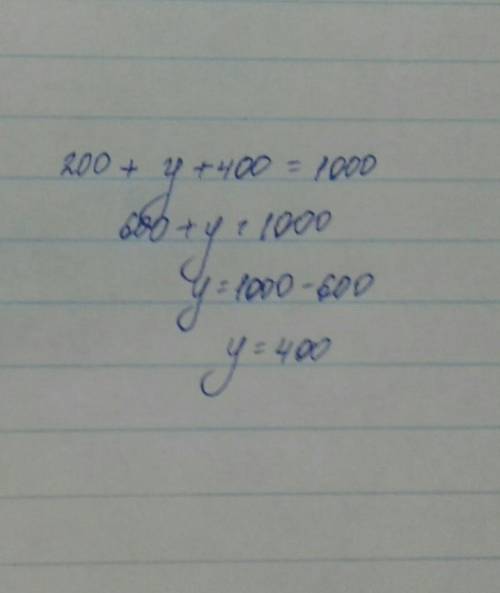 200 + y + 400 = 1000
600 + y = 1000
y = 1000 - 600
y = 400